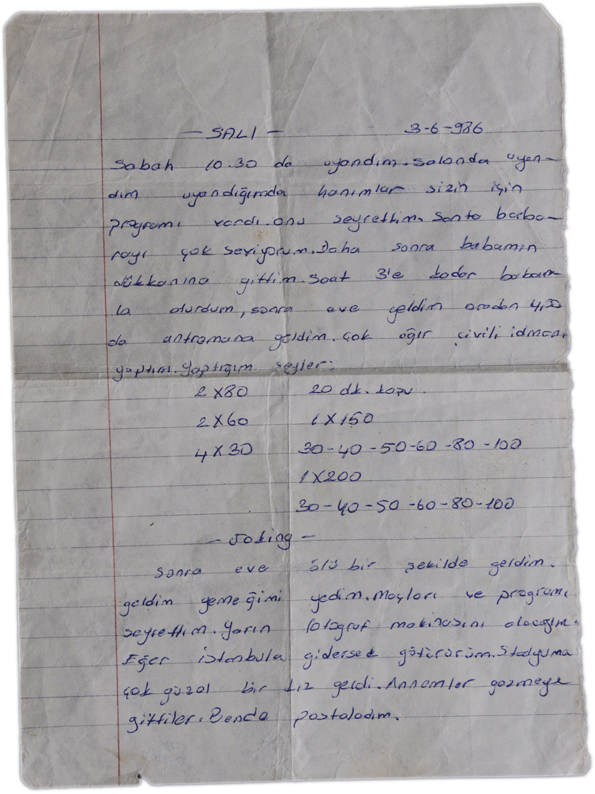 — SALI —    3-6-986
Sabah 10.30 da uyandım. Salonda uyan-
dım uyandığımda hanımlar sizin için
programı vardı. onu seyrettim. Santa barba-
rayı çok seviyorum. Daha sonra babamın
dükkanına gittim. Saat 3'e kadar babam-
la oturdum, sonra eve geldim oradan 4,30
da antremana geldim. çok ağır çivili idman
yaptım. Yaptığım şeyler:
2 X 80    20 dk. koşu.
2 X 60    1 X 150
4 X 30    30-40-50-60-80-100
1 X 200
30-40-50-60-80-100
— Joking —
Sonra eve ölü bir şekilde geldim.
geldim yemeğimi yedim. Maçları ve programı
seyrettim. Yarın fotoğraf makinasını alacağım.
Eğer istanbula gidersek götürürüm. Stadyuma
çok güzel bir kız geldi. Annemler gezmeye
gittiler. Bende postaladım.